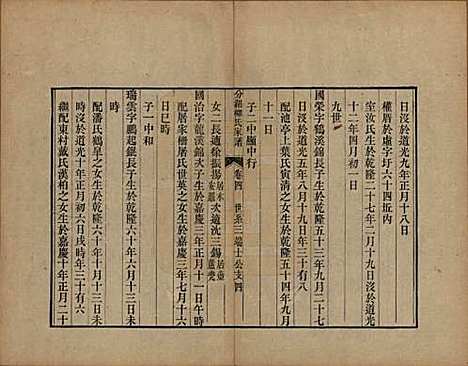 日沒於道光九年正月十八日
權厝於虛字圩六十四坵內
室汝氏生於乾隆二十七年二月十九日沒於道光
十二年四月初一日
九世
國榮字鶴溪錦長子生於乾隆五十三年九月二十七
日沒於道光五年八月十九日年三十有八
配池亭上葉氏寅清之女生於乾隆五十四年九月
十一日
子二中頤中行
分湖柳氏家譜 卷四 世系三 瑞士公支 四
女二長適徐振揚 次適沈三錫
國治字龍溪錦次子生於嘉慶三年正月十一日午時
配居家柵居氏世英之女生於嘉慶三年七月十六
日巳時
子一中和
瑞雲字鵬起銀長子生於乾隆六十年十月十三日未
時
配潘氏鶴皐之女生於乾隆六十年十月十三日未
時沒於道光四年正月初六日戌時年三十有六
繼配東村戴氏漢柏之女生於嘉慶十年正月二十